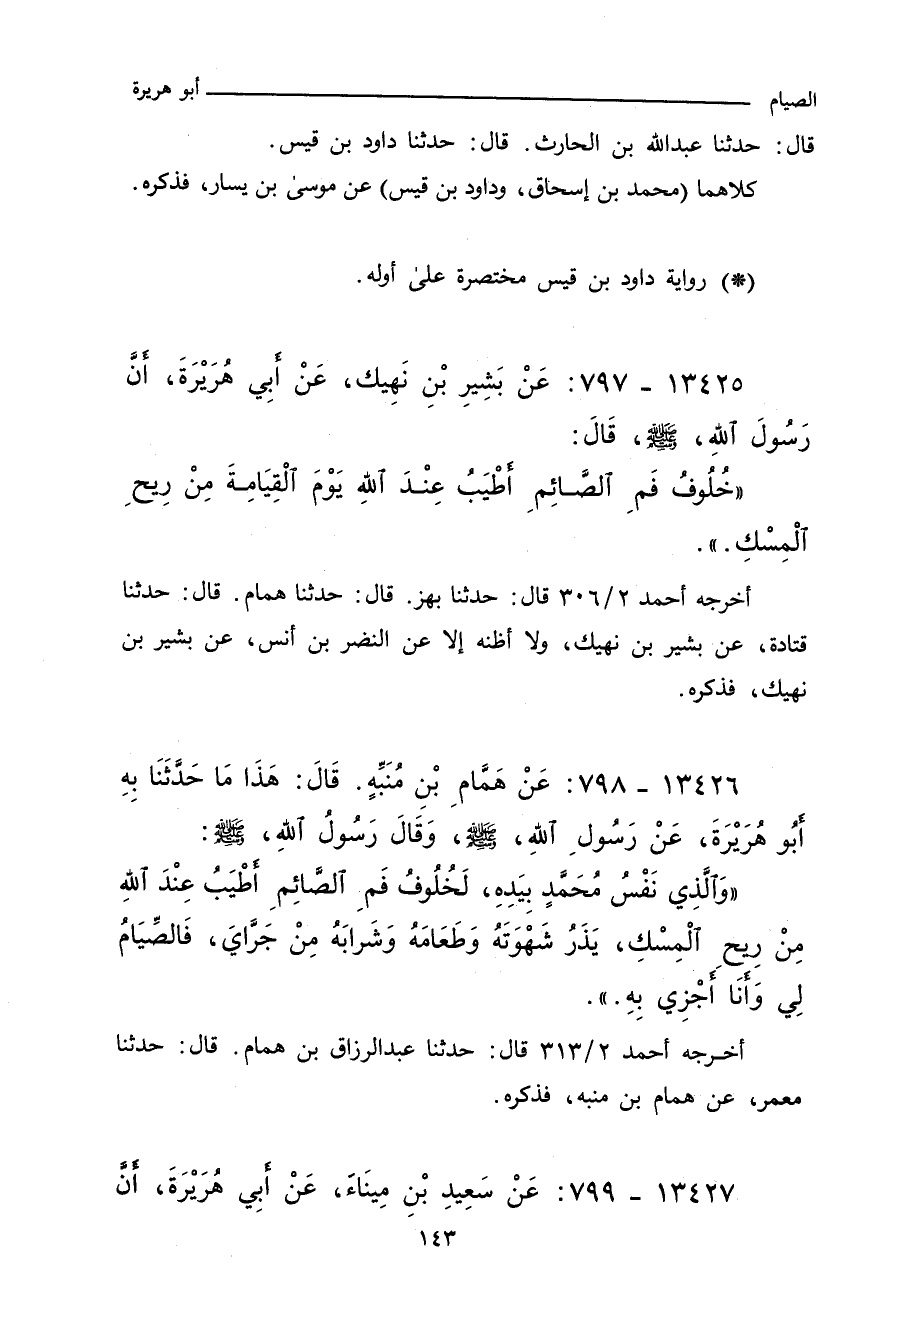 الصيام ــــــــــ أبو هريرة
قال: حدثنا عبدالله بن الحارث. قال: حدثنا داود بن قيس.
كلاهما (محمد بن إسحاق، وداود بن قيس) عن موسىٰ بن يسار، فذكره.
(*) رواية داود بن قيس مختصرة علىٰ أوله.
١٣٤٢٥ - ٧٩٧: عَنْ بَشِيرِ بْنِ نَهِيك، عَنْ أَبِي هُرَيْرَةَ، أَنَّ
رَسُولَ ٱللهِ، ﷺ، قَالَ:
«خُلُوفُ فَمِ ٱلصَّائِمِ أَطْيَبُ عِنْدَ ٱللهِ يَوْمَ ٱلْقِيَامَةَ مِنْ رِيحِ
ٱلْمِسْكِ.».
أخرجه أحمد ٣٠٦/٢ قال: حدثنا بهز. قال: حدثنا همام. قال: حدثنا
قتادة، عن بشير بن نهيك، ولا أظنه إلا عن النضر بن أنس، عن بشير بن
نهيك، فذكره.
١٣٤٢٦ - ٧٩٨: عَنْ هَمَّامِ بْنِ مُنَبِّهٍ. قَالَ: هَذَا مَا حَدَّثَنَا بِهِ
أَبُو هُرَيْرَةَ، عَنْ رَسُولِ ٱللهِ، ﷺ، وَقَالَ رَسُولُ ٱللهِ، ﷺ:
«وَٱلَّذِي نَفْسُ مُحَمَّدٍ بِيَدِهِ، لَخُلُوفُ فَمِ ٱلصَّائِمِ أَطْيَبُ عِنْدَ ٱللهِ
مِنْ رِيحِ ٱلْمِسْكِ، يَذَرُ شَهْوَتَهُ وَطَعَامَهُ وَشَرابَهُ مِنْ جَرَّايَ، فَالصِّيَامُ
لِي وَأَنَا أَجْزِي بِهِ.».
أخرجه أحمد ٣١٣/٢ قال: حدثنا عبدالرزاق بن همام. قال: حدثنا
معمر، عن همام بن منبه، فذكره.
١٣٤٢٧ - ٧٩٩: عَنْ سَعِيدِ بْنِ مِينَاءَ، عَنْ أَبِي هُرَيْرَةَ، أَنَّ
١٤٣